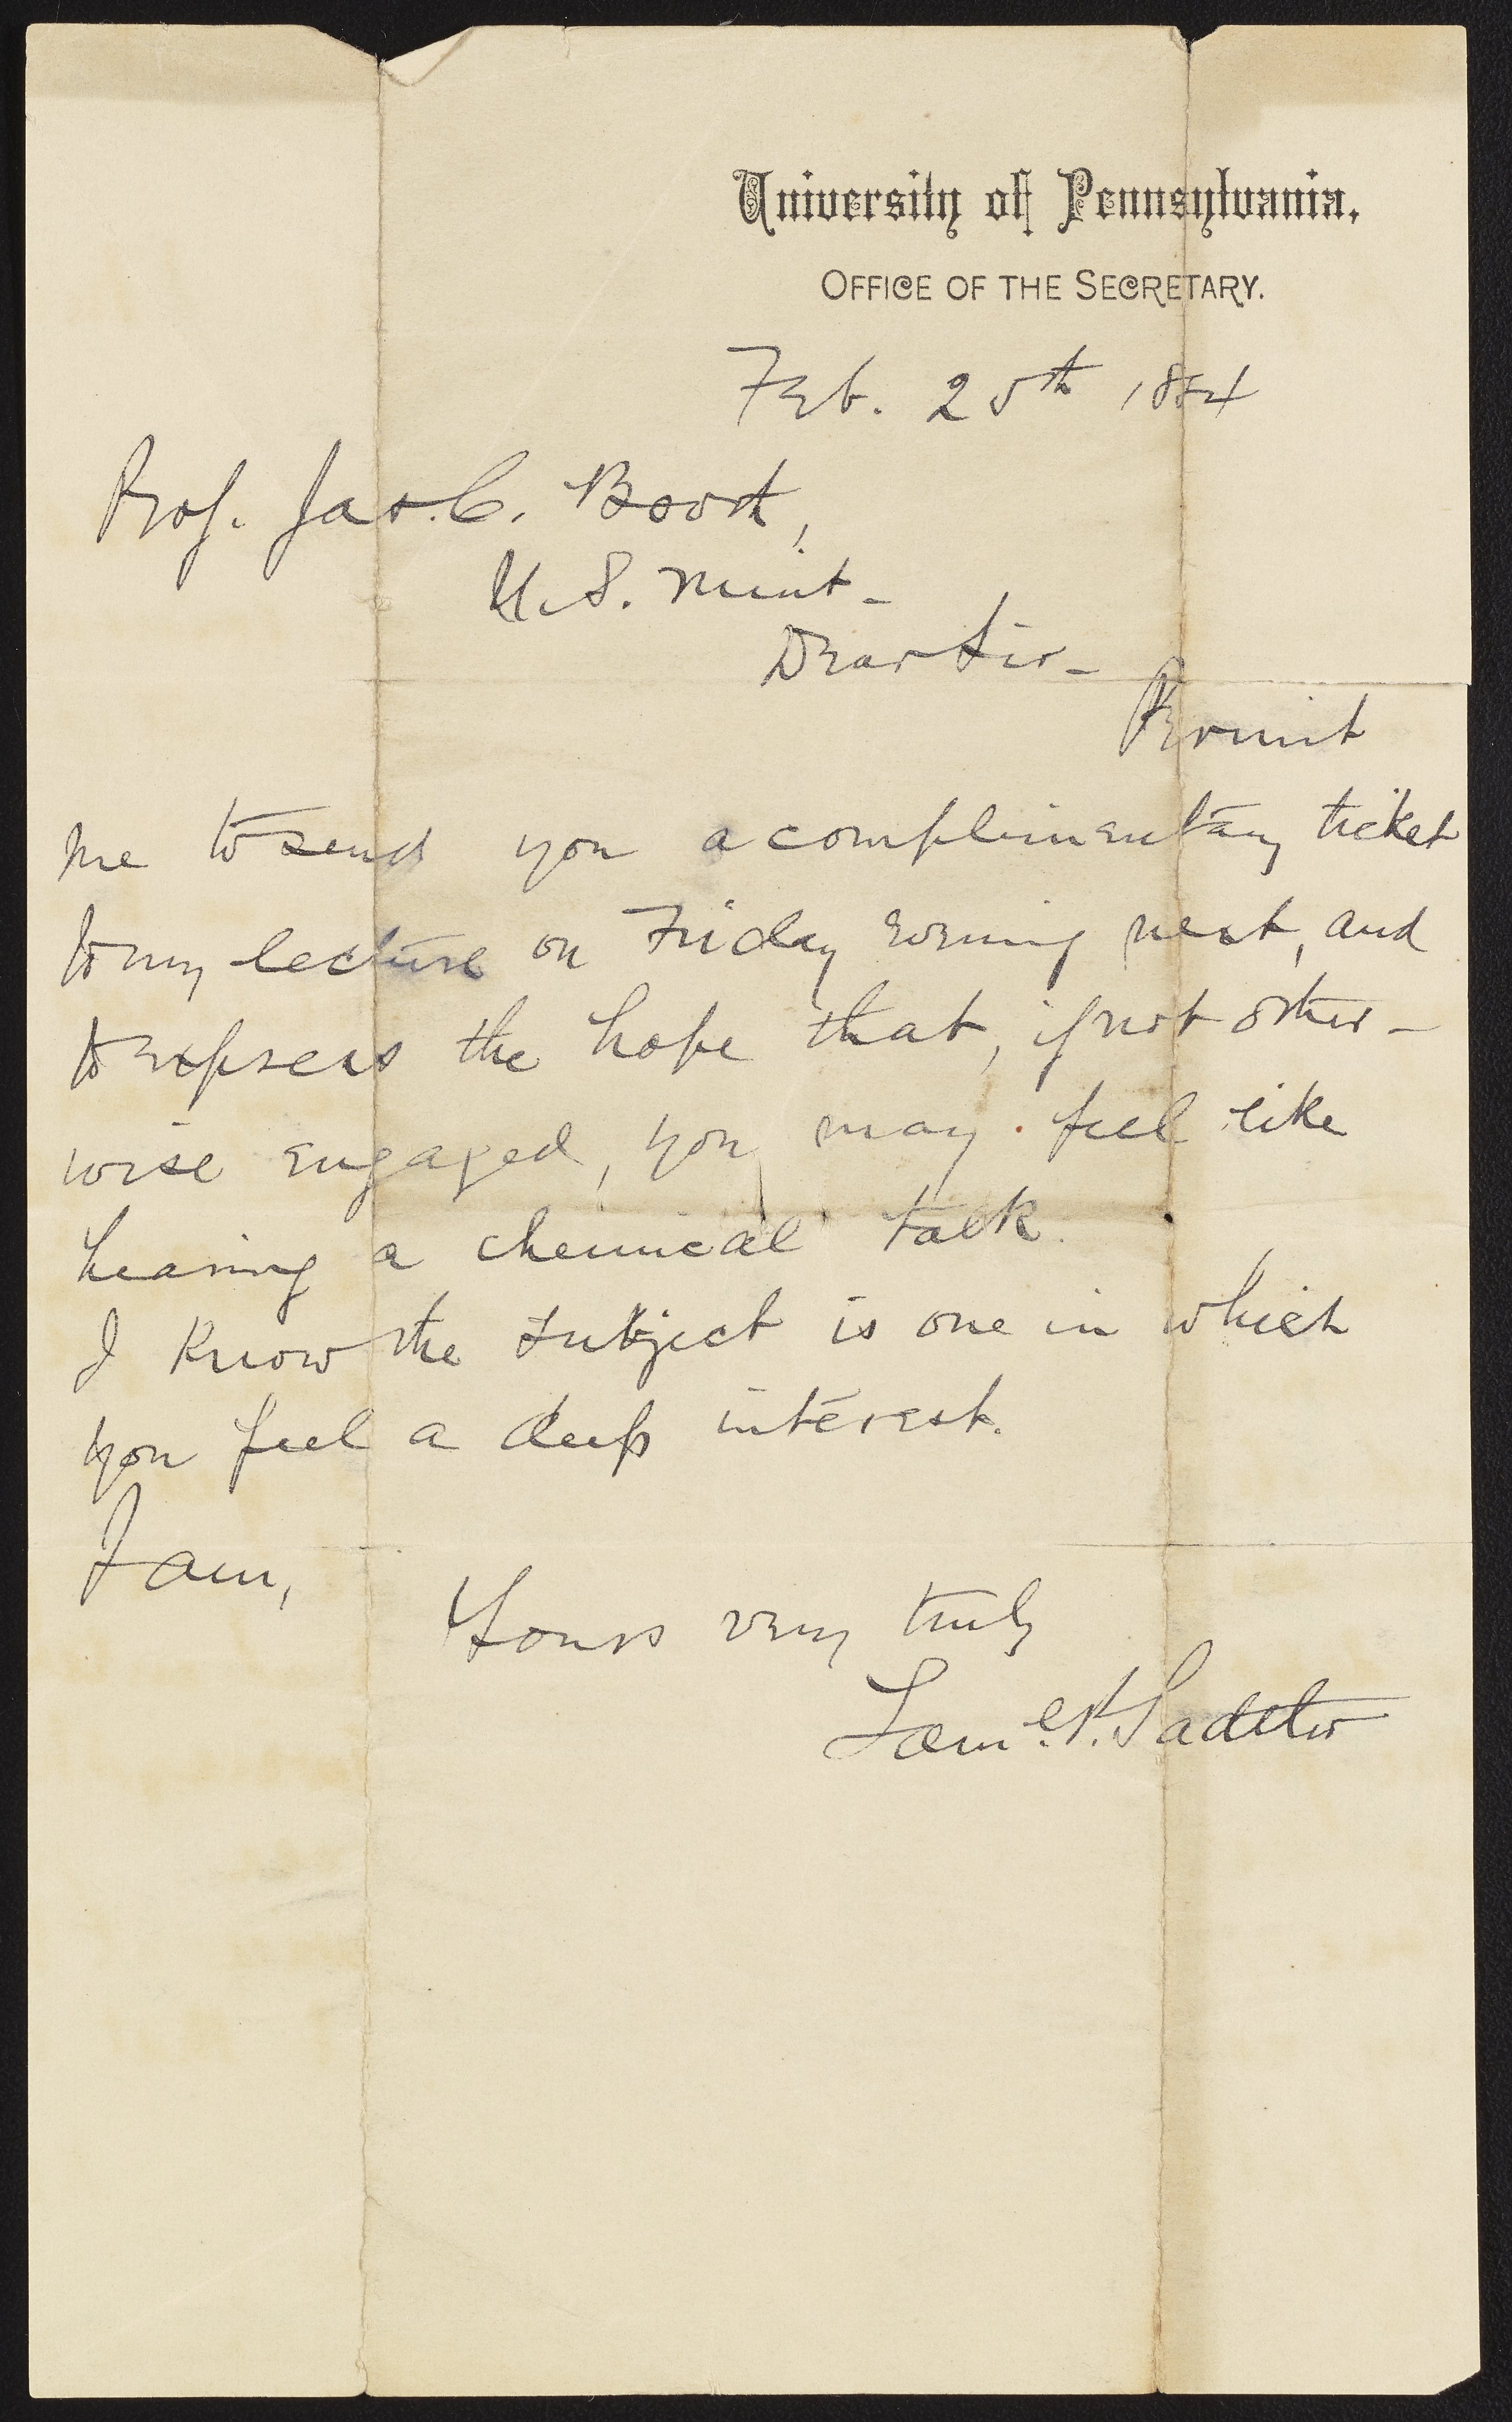 University of Pennsylvania,
OFFICE OF THE SECRETARY.
Feb. 25th 1884
Prof. Jas. C. Booth,
U. S. Mint -
Dear Sir -
Permit
me to send you a complimentary ticket
to my lecture on Friday evening next, and
to express the hope that, if not other-
wise engaged, you may feel like
hearing a chemical talk.
I know the subject is one in which
you feel a deep interest.
I am,
Yours very truly
Saml. P. Sadtler